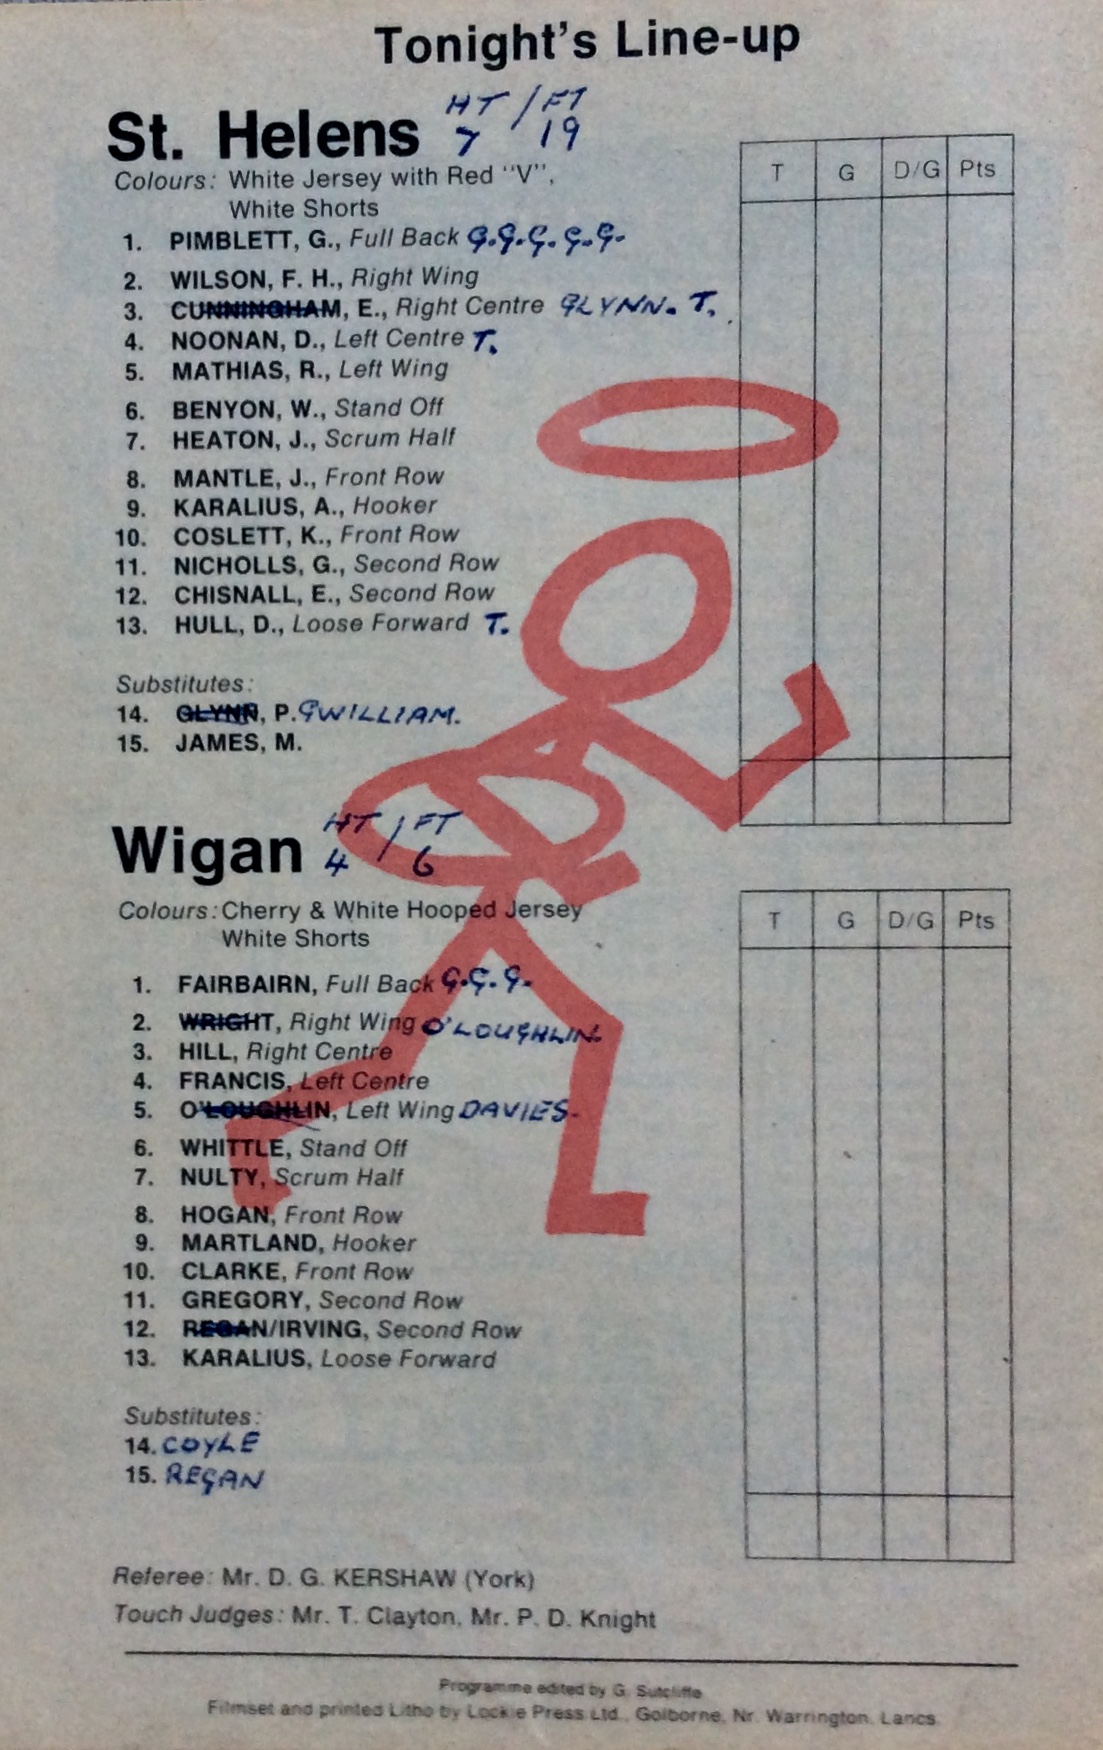 Tonight's Line-up
St. Helens HT / FT
7 19
Colours: White Jersey with Red "V",
White Shorts
1. PIMBLETT, G., Full Back G.G.G.G.G.
2. WILSON, F. H., Right Wing
3. CUNNINGHAM, E., Right Centre GLYNN. T.
4. NOONAN, D., Left Centre T.
5. MATHIAS, R., Left Wing
6. BENYON, W., Stand Off
7. HEATON, J., Scrum Half
8. MANTLE, J., Front Row
9. KARALIUS, A., Hooker
10. COSLETT, K., Front Row
11. NICHOLLS, G., Second Row
12. CHISNALL, E., Second Row
13. HULL, D., Loose Forward T.
Substitutes:
14. GLYNN, P. GWILLIAM.
15. JAMES, M.
T G D/G Pts
Wigan HT / FT
4 6
Colours: Cherry & White Hooped Jersey
White Shorts
1. FAIRBAIRN, Full Back G.G.G.
2. WRIGHT, Right Wing O'LOUGHLIN.
3. HILL, Right Centre
4. FRANCIS, Left Centre
5. O'LOUGHLIN, Left Wing DAVIES.
6. WHITTLE, Stand Off
7. NULTY, Scrum Half
8. HOGAN, Front Row
9. MARTLAND, Hooker
10. CLARKE, Front Row
11. GREGORY, Second Row
12. REGAN/IRVING, Second Row
13. KARALIUS, Loose Forward
Substitutes:
14. COYLE
15. REGAN
T G D/G Pts
Referee: Mr. D. G. KERSHAW (York)
Touch Judges: Mr. T. Clayton, Mr. P. D. Knight
Programme edited by G. Sutcliffe
Filmset and printed Litho by Lockie Press Ltd., Golborne, Nr. Warrington, Lancs.